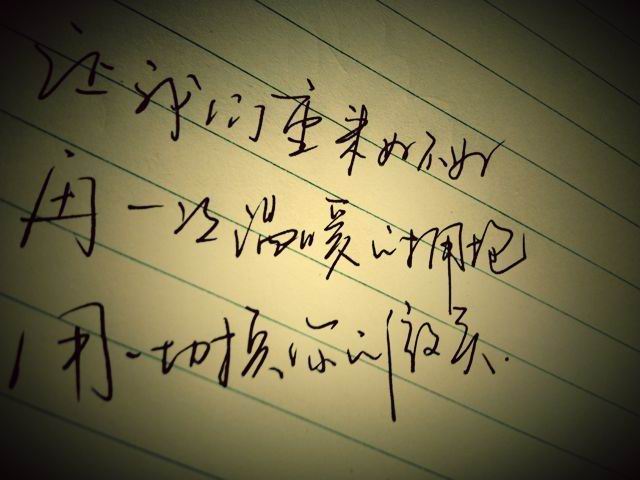 让我们重来好不好
用一次温暖的拥抱
用一切换你的微笑.